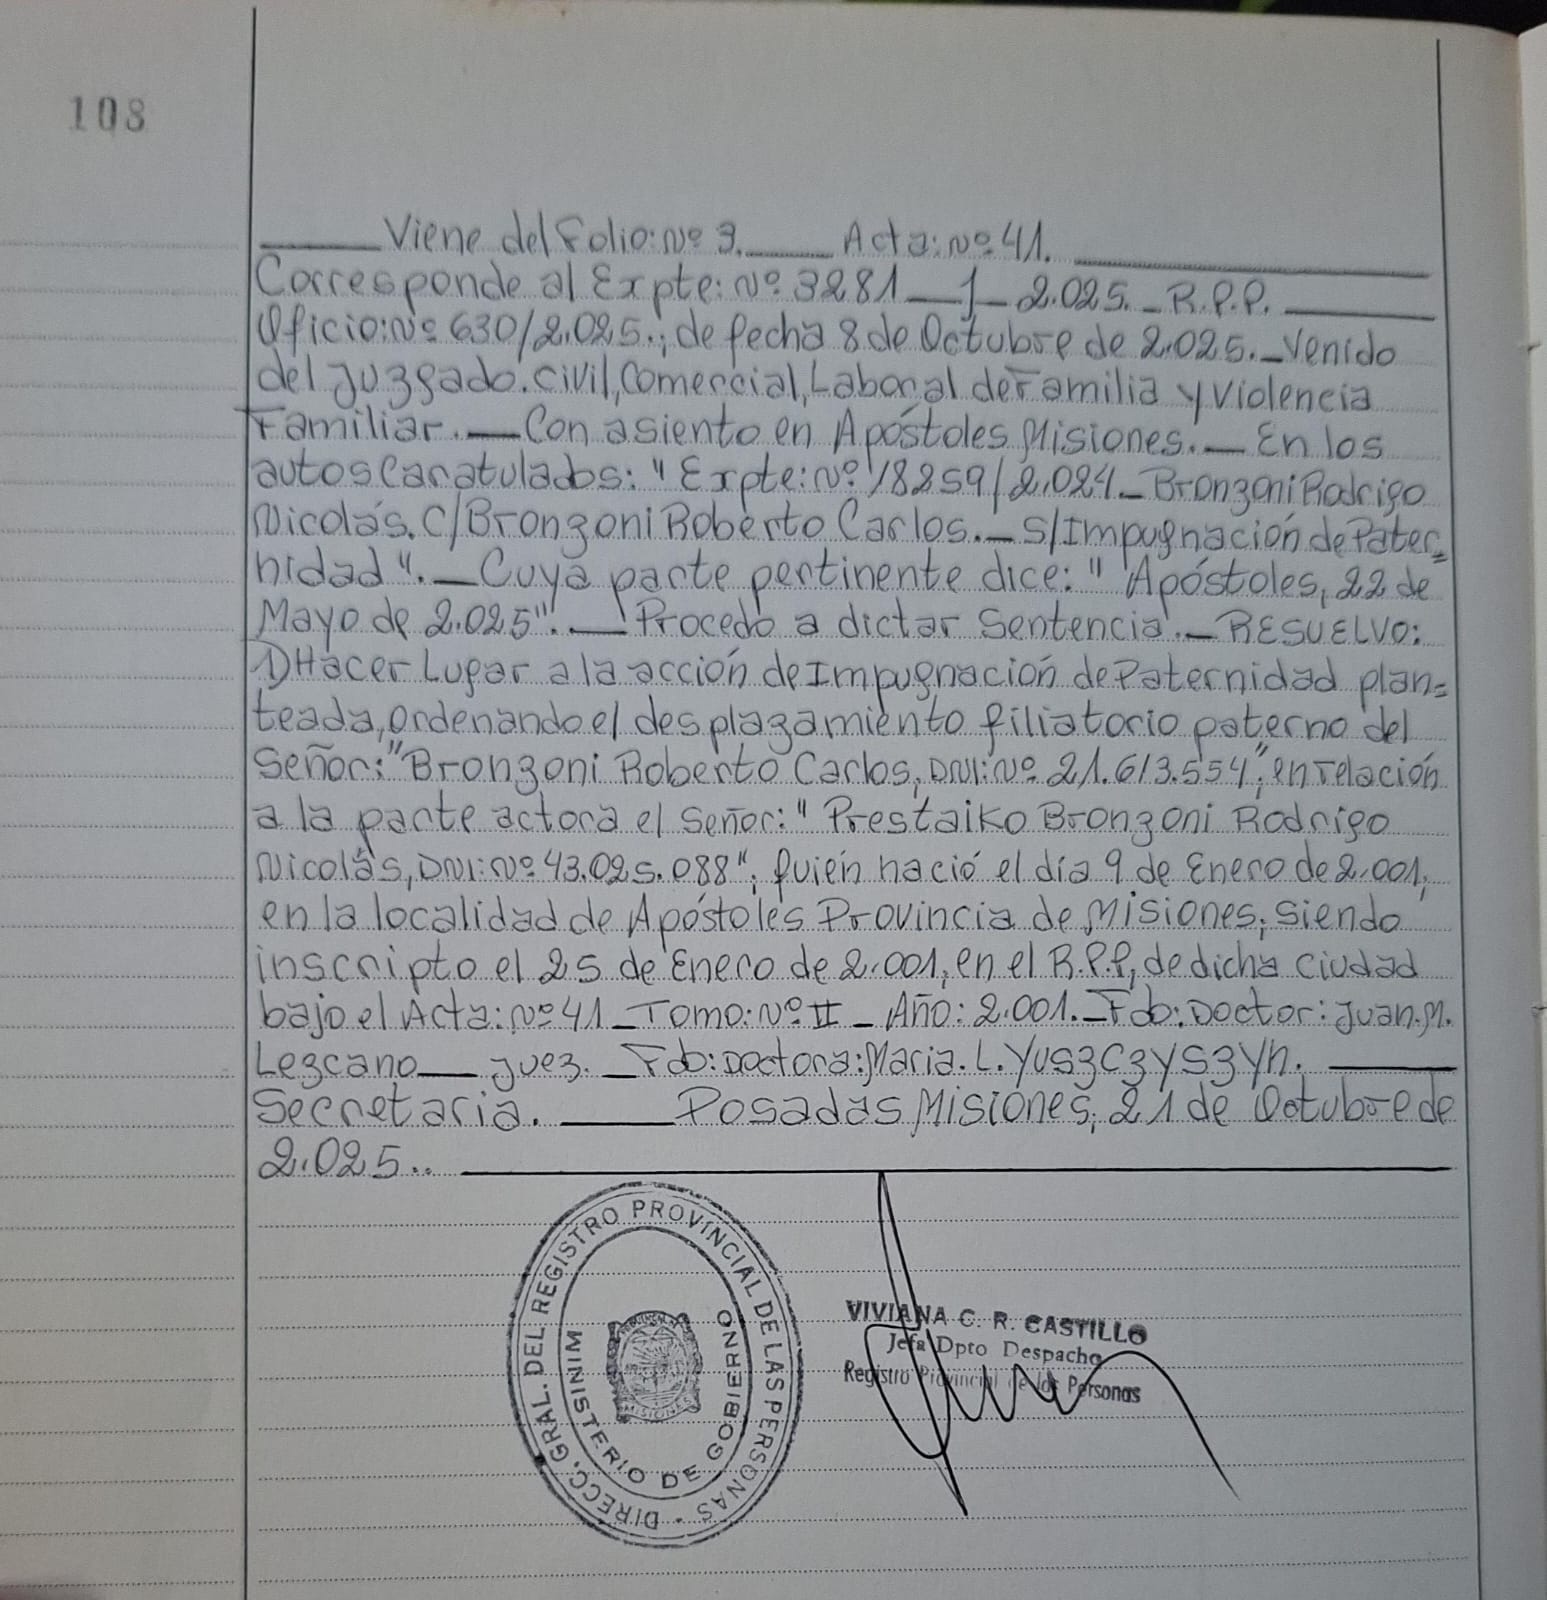 108
Viene del Folio: Nº 3. Acta: Nº 41.
Corresponde al Expte: Nº 3281_1_2.025._R.P.P.
Oficio: Nº 630/2.025.; de fecha 8 de Octubre de 2.025._Venido
del Juzgado. Civil, Comercial, Laboral de Familia y Violencia
Familiar.__Con asiento en Apóstoles Misiones.__En los
autos Caratulados: "Expte: Nº 18259/2.024._Bronzoni Rodrigo
Nicolás. C/Bronzoni Roberto Carlos._S/Impugnación de Pater=
nidad".__Cuya parte pertinente dice: "Apóstoles, 22 de
Mayo de 2.025".__Procedo a dictar Sentencia._RESUELVO:
1) Hacer Lugar a la acción de Impugnación de Paternidad plan=
teada, ordenando el desplazamiento filiatorio paterno del
Señor: "Bronzoni Roberto Carlos, DNI: Nº 21.613.554"; en relación
a la parte actora el Señor: "Prestaiko Bronzoni Rodrigo
Nicolás, DNI: Nº 43.025.088"; quién nació el día 9 de Enero de 2.001;
en la localidad de Apóstoles Provincia de Misiones; siendo
inscripto el 25 de Enero de 2.001, en el R.P.P, de dicha Ciudad
bajo el Acta: Nº 41_Tomo: Nº II_Año: 2.001._Fdo: Doctor: Juan. M.
Lezcano__Juez._Fdo: Doctora: Maria. L. Yuszczyszyn.
Secretaria. Posadas Misiones; 21 de Octubre de
2.025..
DIRECC. GRAL. DEL REGISTRO PROVINCIAL DE LAS PERSONAS
MINISTERIO DE GOBIERNO
MISIONES
VIVIANA C. R. CASTILLO
Jefa Dpto Despacho
Registro Provincial de las Personas